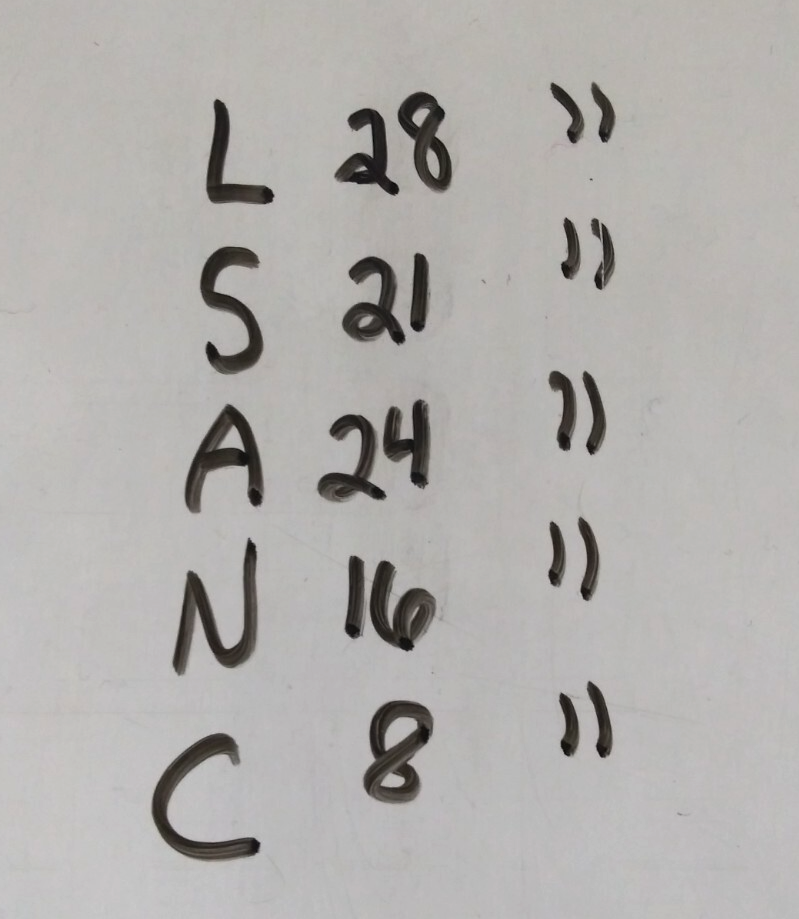 L 28 "
S 21 "
A 24 "
N 16 "
C 8 "